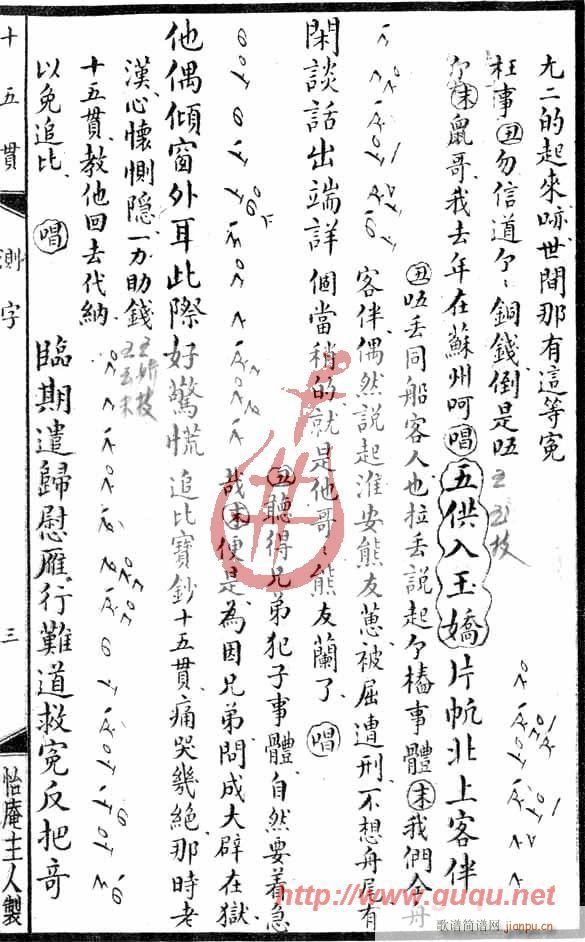 尢二的起來㖿世間那有這等冤
枉事丑勿信道个〻銅錢倒是唔
个末鼠哥我去年在蘇州呵唱五供入玉嬌片帆北上客伴
丑唔丢同船客人也拉丢說起个樁事體末我們合舟
客伴偶然說起淮安熊友蕙被屈遭刑不想舟尾有
閑談話出端詳個當稍的就是他哥〻熊友蘭了唱
丑聽得兄弟犯子事體自然要着急
哉末便是為因兄弟問成大辟在獄
他偶傾窗外耳此際好驚慌追比寶鈔十五貫痛哭幾絕那時老
漢心懷惻隐一力助錢
十五貫教他回去代納
以免追比唱臨期遣歸慰雁行難道救冤反把奇
十五貫
測字
三
怡庵主人製
http://www.guqu.net
歌谱简谱网
jianpu.cn